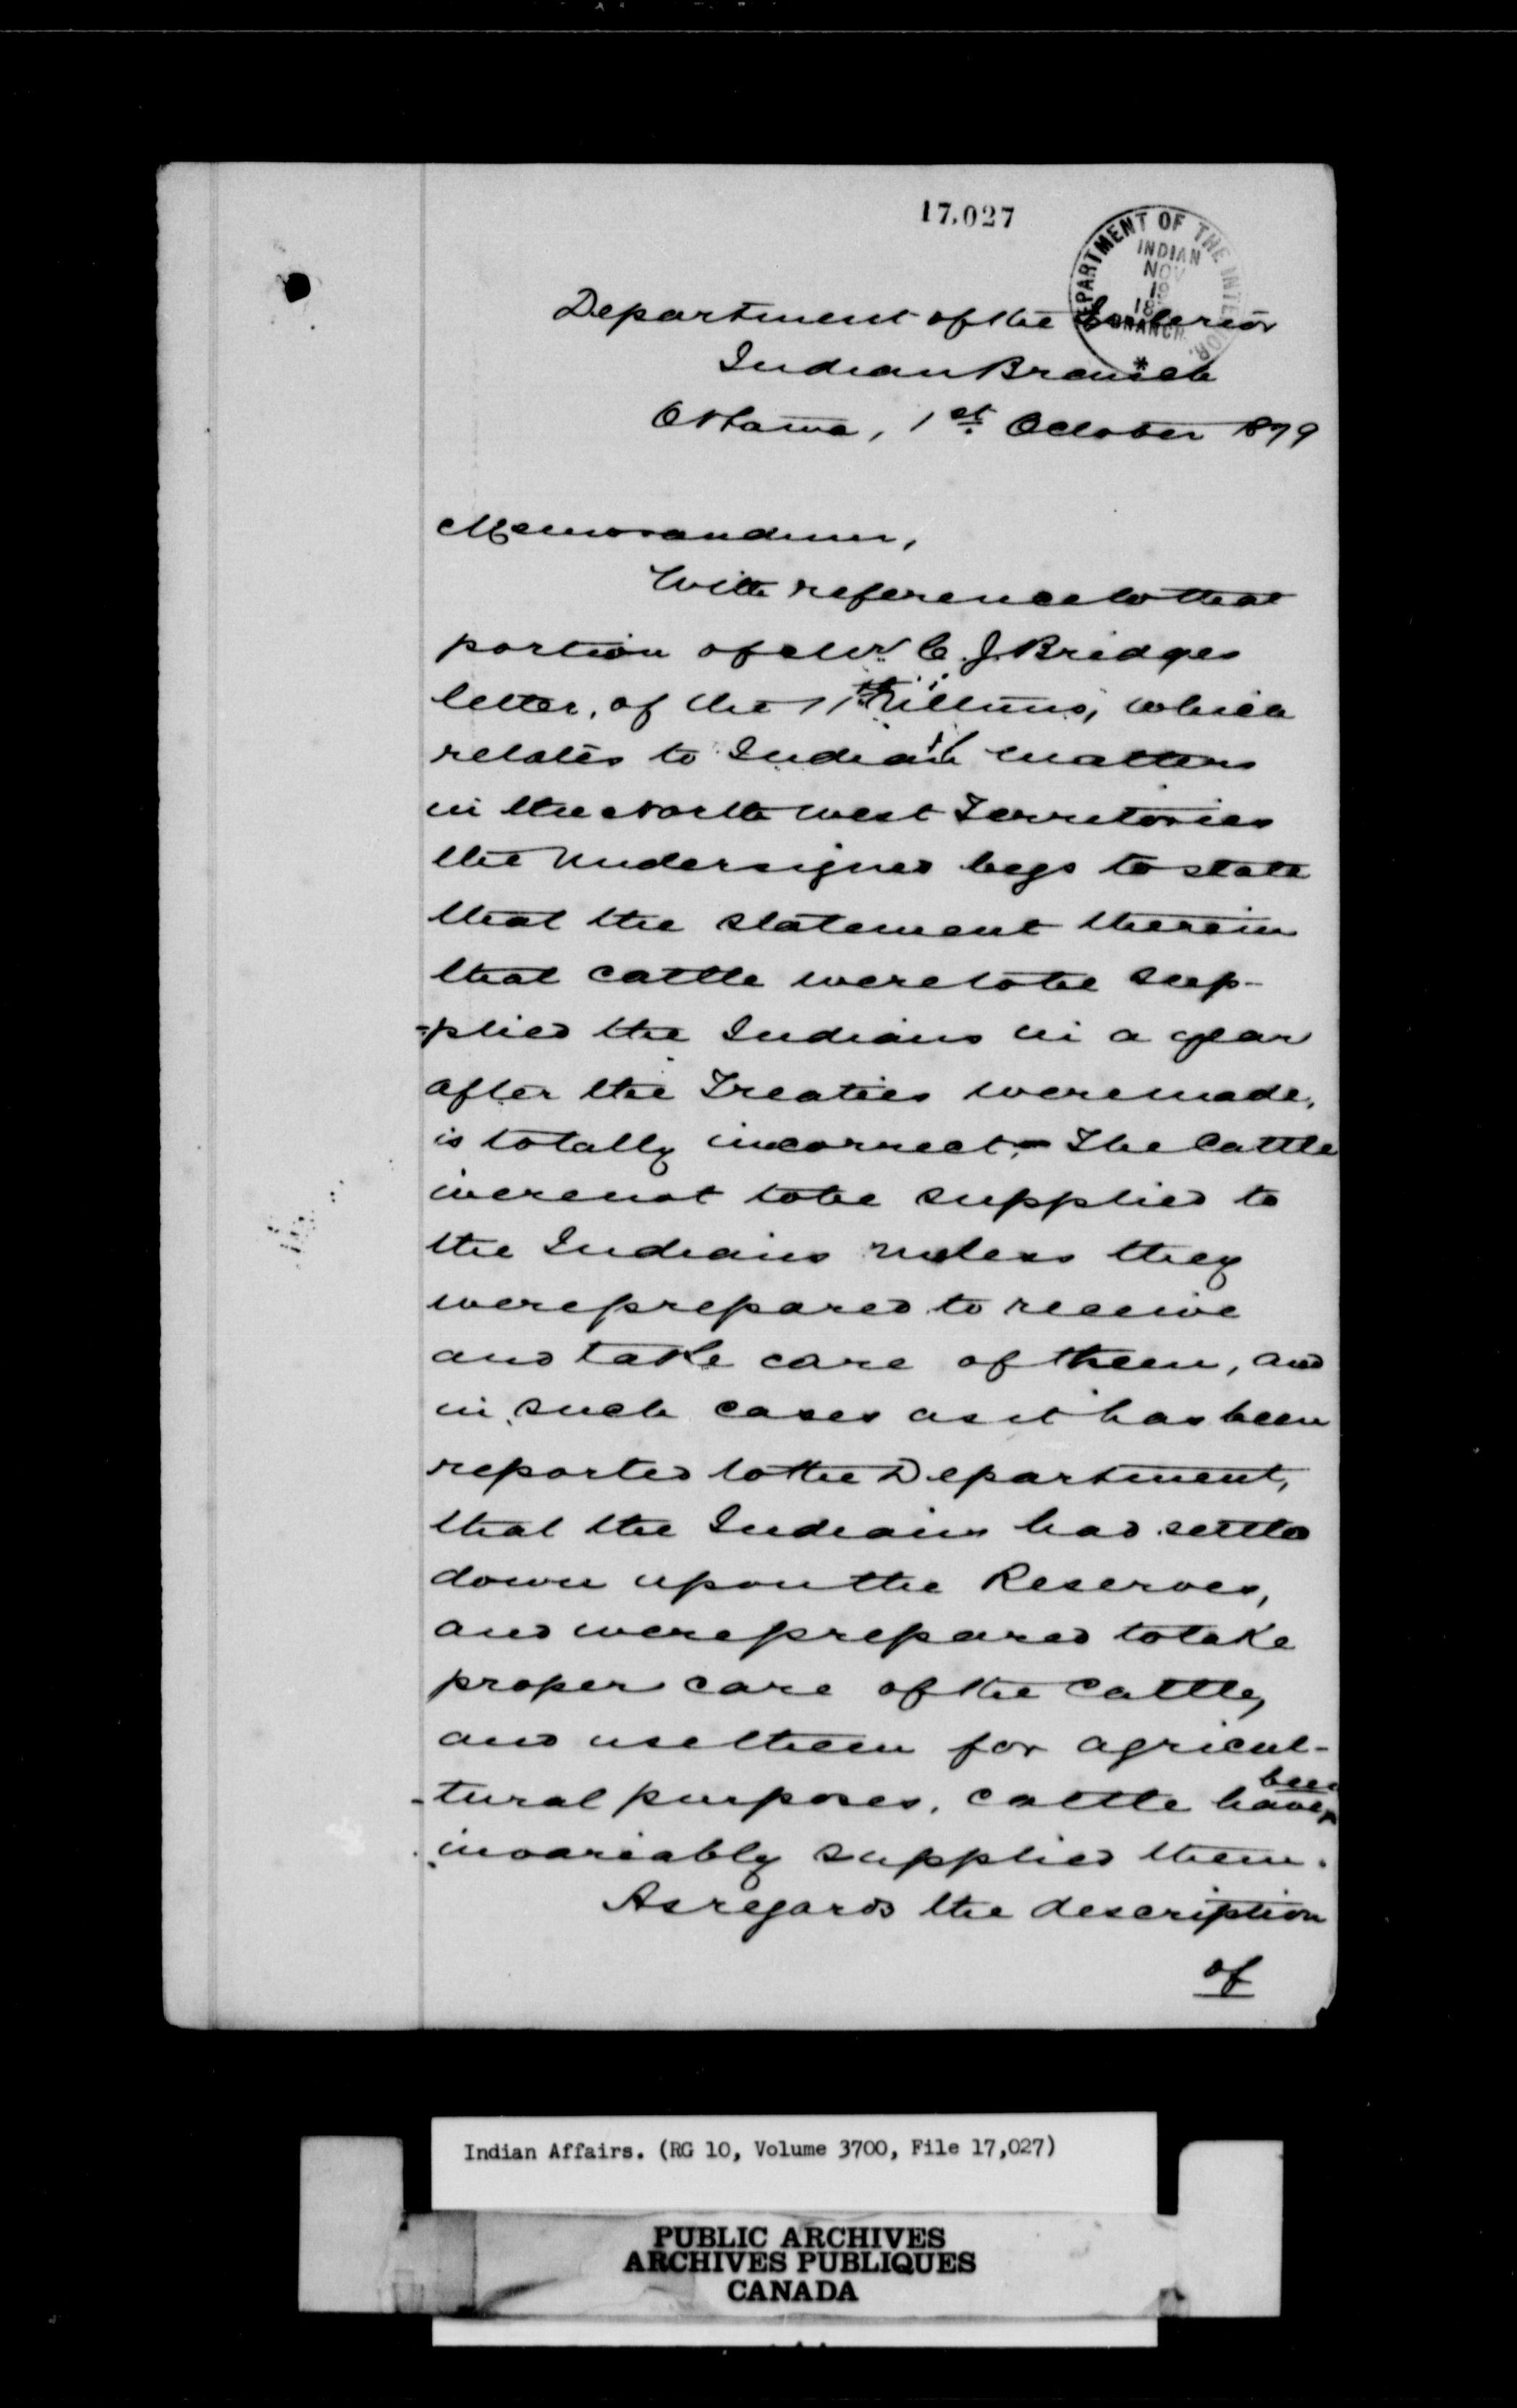 17,027
DEPARTMENT OF THE INTERIOR.
INDIAN
NOV
18
BRANCH
*
Department of the Interior
Indian Branch
Ottawa, 1st. October 1879
Memorandum,
With reference to that
portion of Mr. C. J. Bridges
letter, of the 11th ultimo, which
relates to Indian matters
in the North West Territories
the undersigned begs to state
that the statement therein
that cattle were to be sup-
-plied the Indians in a year
after the Treaties were made,
is totally incorrect. The Cattle
were not to be supplied to
the Indians unless they
were prepared to receive
and take care of them, and
in such cases as it has been
reported to the Department,
that the Indians had settled
down upon the Reserves,
and were prepared to take
proper care of the Cattle,
and use them for agricul-
-tural purposes, cattle have been
invariably supplied them.
As regards the description
of
Indian Affairs. (RG 10, Volume 3700, File 17,027)
PUBLIC ARCHIVES
ARCHIVES PUBLIQUES
CANADA